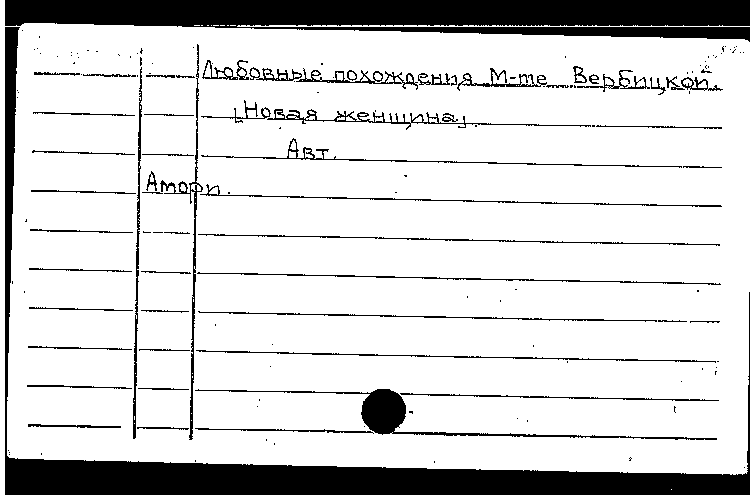 Любовные похождения М-те Вербицкой.
[Новая женщина].
Авт.
Амори.